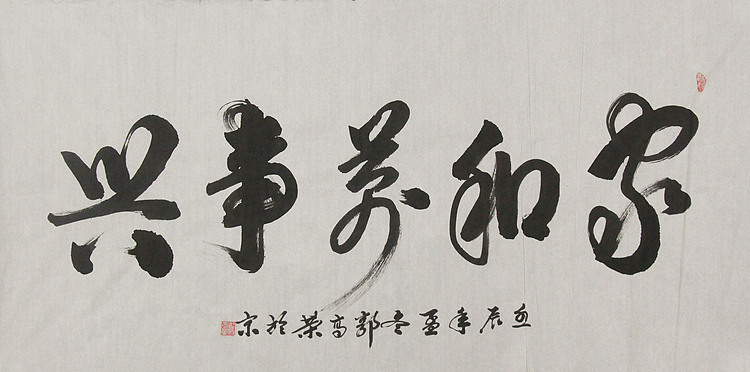 家和萬事興
辰年孟冬高榮於京